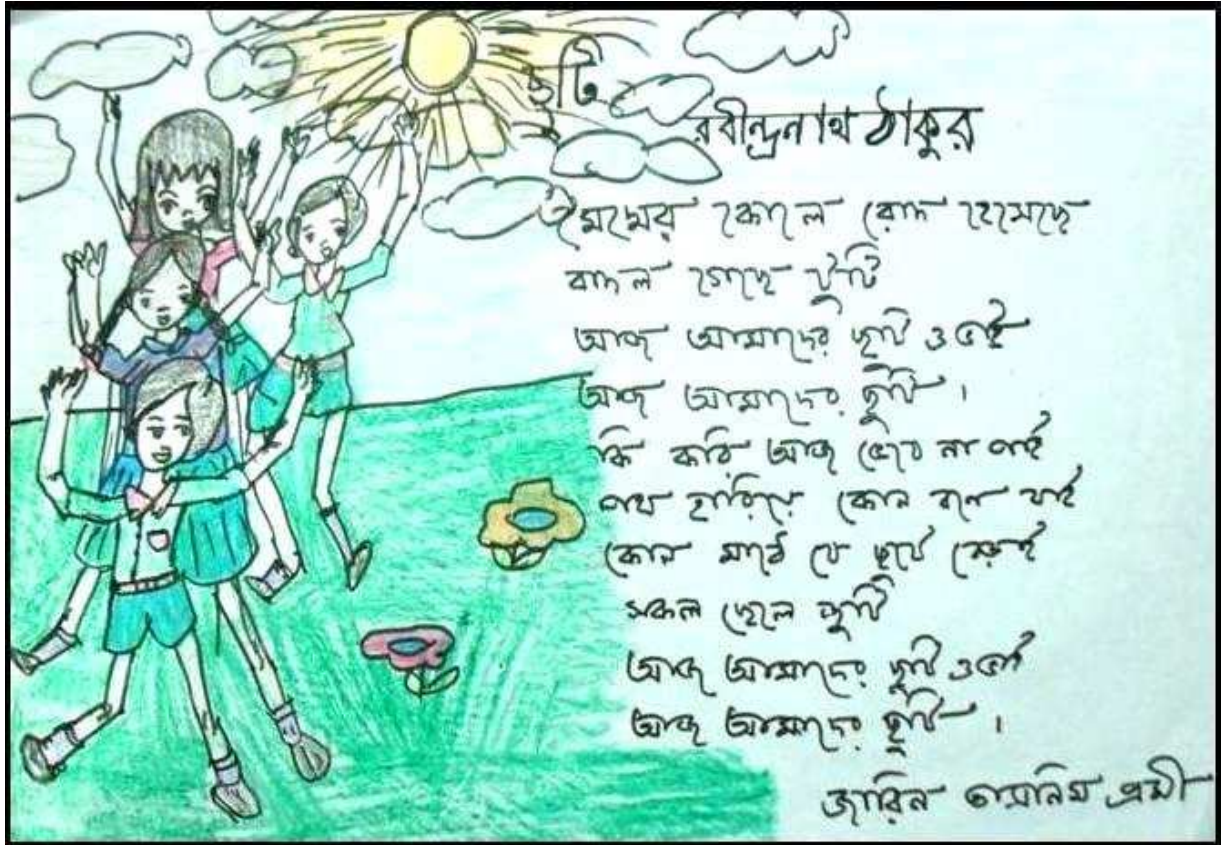 ছুটি
রবীন্দ্রনাথ ঠাকুর
মেঘের কোলে রোদ হেসেছে
বাদল গেছে টুটি
আজ আমাদের ছুটি ও ভাই
আজ আমাদের ছুটি ।
কি করি আজ ভেবে না পাই
পথ হারিয়ে কোন বনে যাই
কোন মাঠে যে ছুটে বেড়াই
সকল ছেলে জুটি
আজ আমাদের ছুটি ও ভাই
আজ আমাদের ছুটি ।
জারিন তাসনিম প্রমী